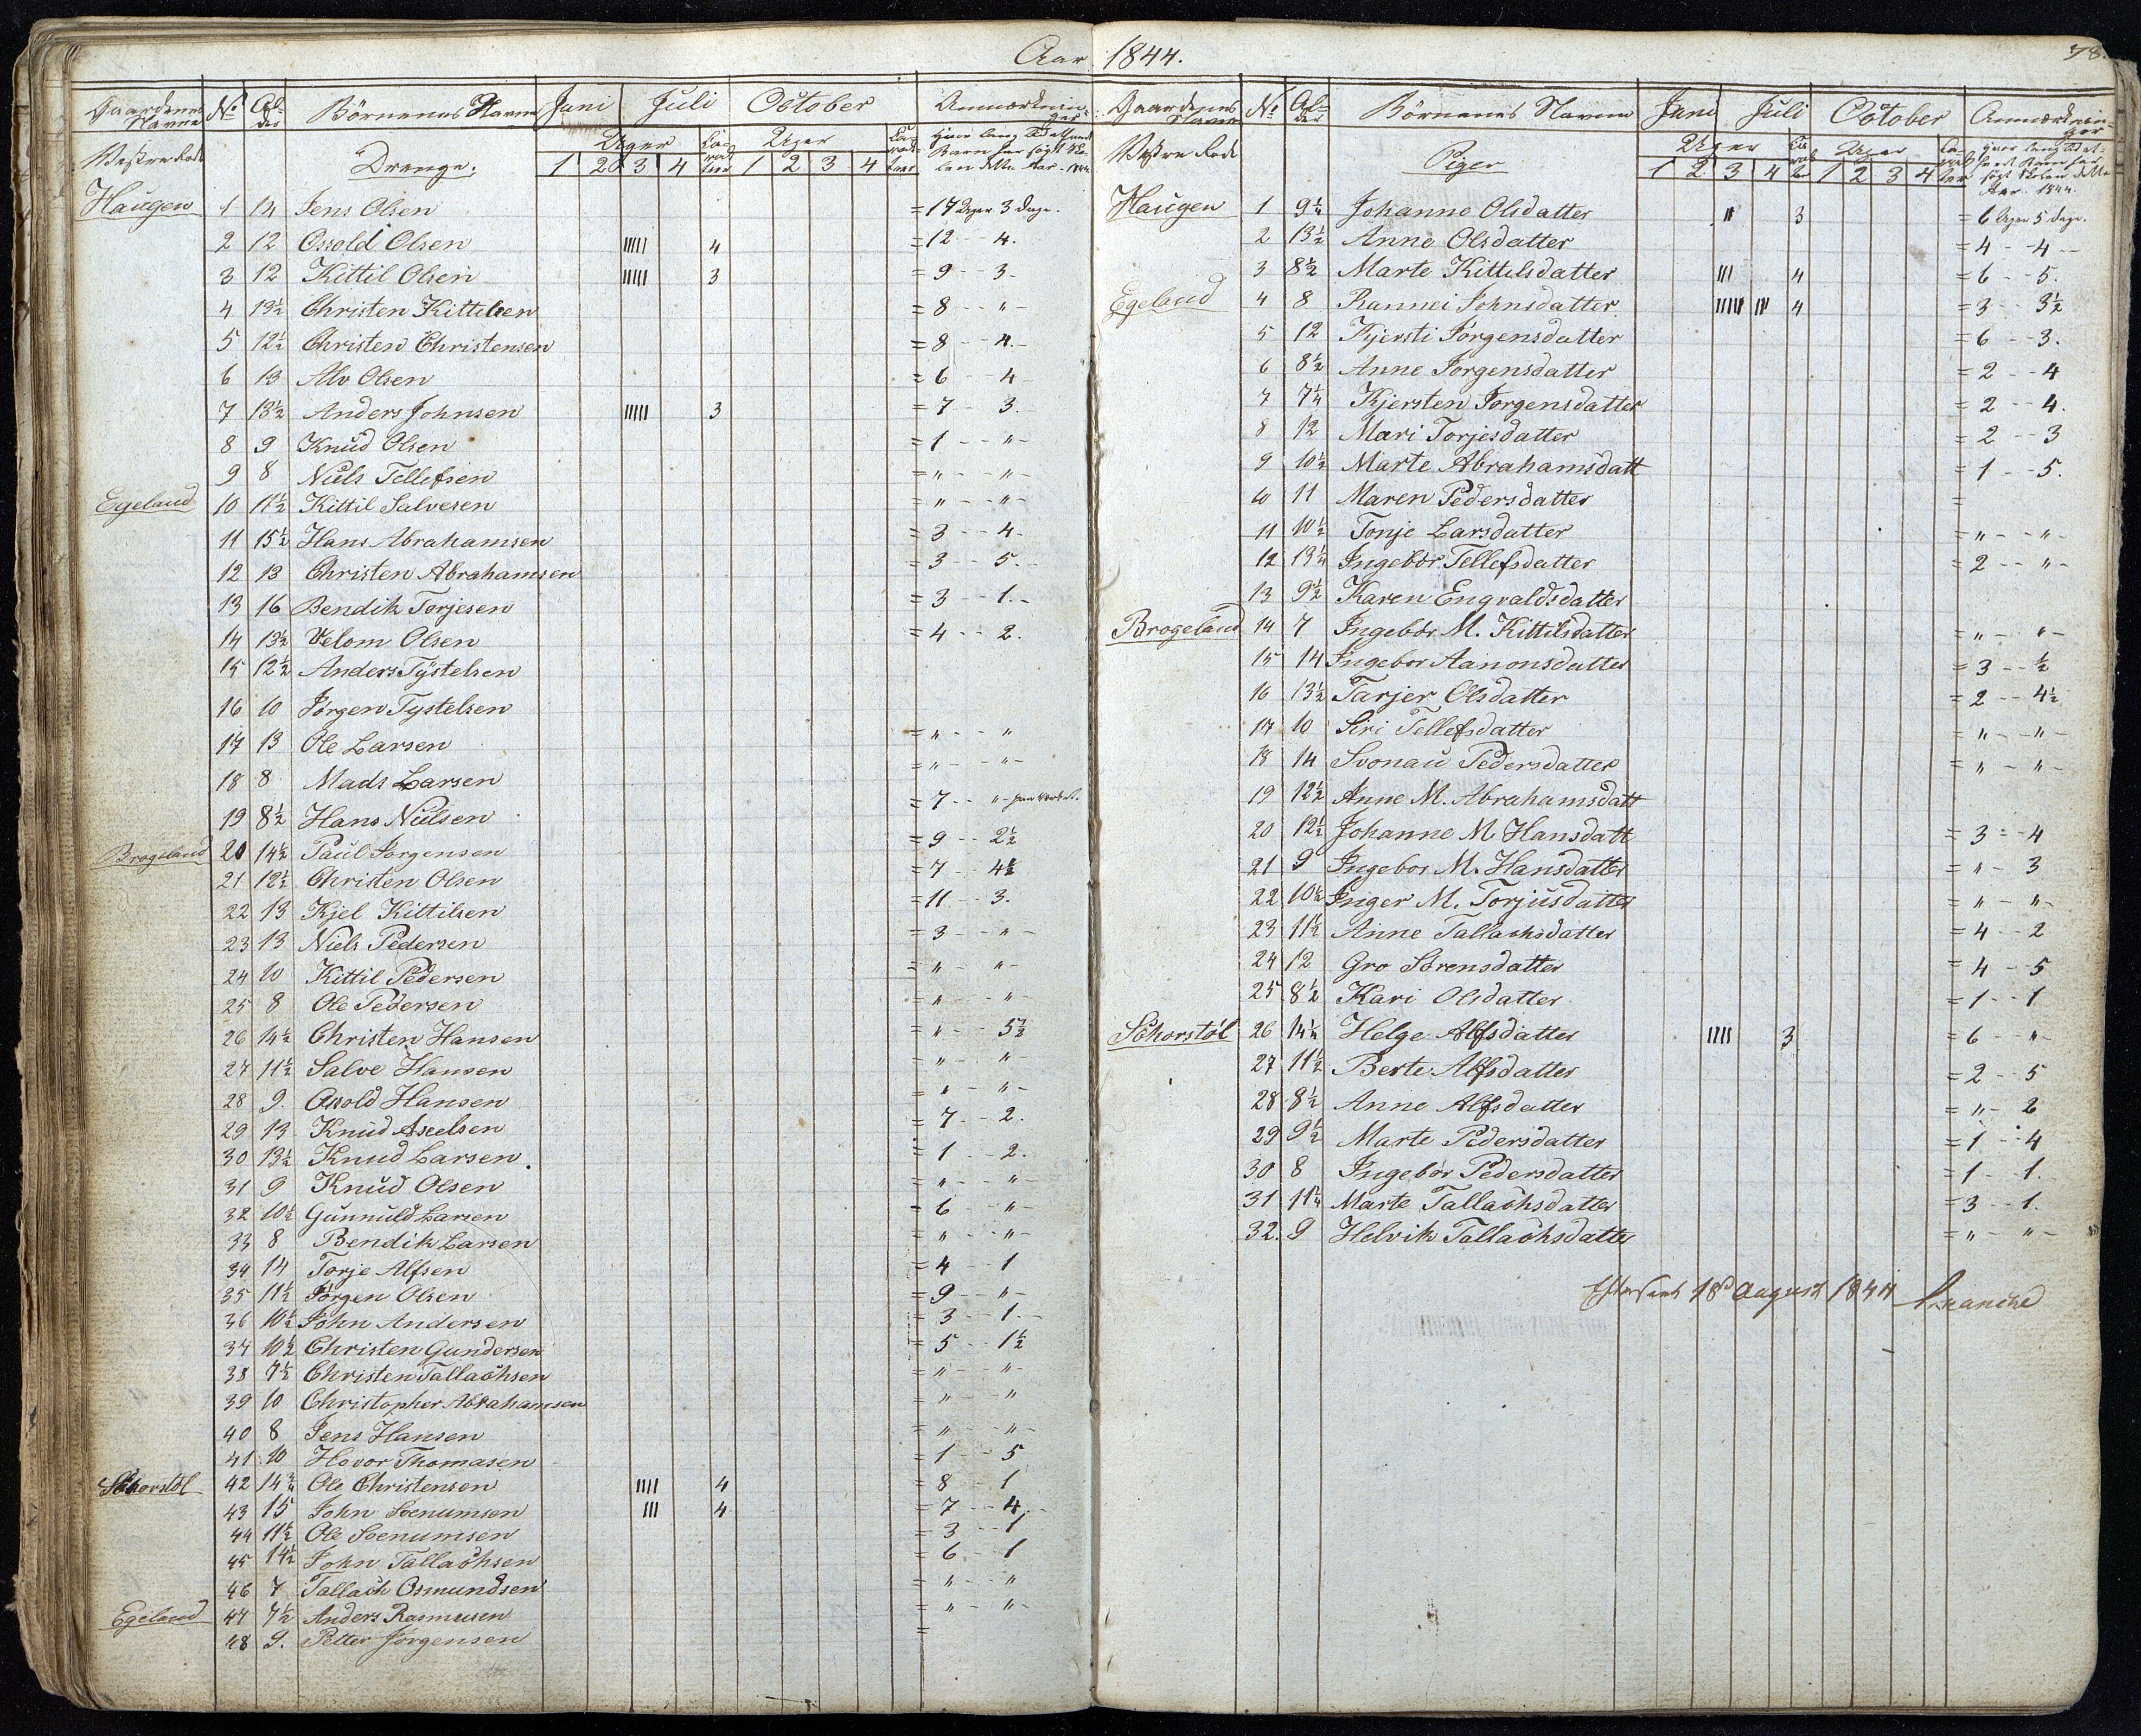 Aar 1844.
78.
Gaardenes Navne No Alder Børnenes Navne Juni Juli October Anmærkninger
Uger Uger
Vestre Rode Drenge. 1 2 3 4 1 2 3 4
Haugen 1 14 Jens Olsen = 17 Uger 3 Dage.
2 12 Osvold Olsen IIIII 4 = 12 - - 4.
3 12 Kittil Olsen IIIII 3 = 9 - - 3 -
4 13½ Christen Kittelsen = 8 - - " -
5 12½ Christen Christensen = 8 - - 4. -
6 13 Alv Olsen = 6 - - 4 -
7 13½ Anders Johnsen IIIII 3 = 7 - - 3. -
8 9 Knud Olsen = 1 - - " -
9 8 Niels Tellefsen = " - - " -
Egeland 10 11½ Kittil Salvesen = " - - " -
11 15½ Hans Abrahamsen = 3 - - 4 -
12 13 Christen Abrahamsen = 3 - - 5. -
13 16 Bendik Torjesen = 3 - - 1. -
14 13½ Velom Olsen = 4 - - 2.
15 12½ Anders Tystelsen
16 10 Jørgen Tystelsen
17 13 Ole Larsen = " - - "
18 8 Mads Larsen = " - - " -
19 8½ Hans Nielsen = 7 - - " -
Brogeland 20 14½ Paul Jørgensen = 9 - - 2½
21 12½ Christen Olsen = 7 - - 4½
22 13 Kjel Kittilsen = 11 - - 3.
23 13 Niels Pedersen = 3 - - " -
24 10 Kittil Pedersen = " - " -
25 8 Ole Pedersen = " - - " -
26 14½ Christen Hansen = " - - 5½
27 11½ Salve Hansen = " - - " -
28 9. Osvold Hansen = " - - " -
29 13 Knud Aseelsen = 7 - - 2.
30 13½ Knud Larsen = 1 - - 2.
31 9 Knud Olsen = " - - " -
32 10½ Gunnuld Larsen = 6 - - " -
33 8 Bendik Larsen = " - - " -
34 14 Torje Alfsen = 4 - - 1
35 11½ Jørgen Olsen = 9 - - " -
36 10½ John Andersen = 3 - - 1. -
37 10½ Christen Gundersen = 5 - - 1½
38 7½ Christen Tallachsen = " - - " -
39 10 Christopher Abrahamsen = " - - "
40 8 Jens Hansen = " - - " -
41 10 Hovor Thomasen = 1 - - 5
Skhorstöl 42 14¾ Ole Christensen IIII 4 = 8 - - 1
43 15 John Soenumsen III 4 = 7 - - 4. -
44 11½ Ole Soenumsen = 3 - - 1
45 14½ John Tallachsen = 6 - - 1
46 7 Tallach Osmundsen = " - - "
Egeland 47 7½ Anders Rasmusen = " - - " -
48 9. Petter Jørgensen =
Gaardenes Navne No Alder Børnenes Navne Juni Juli October Anmærkninger
Uger Uger
Vestre Rode Piger 1 2 3 4 1 2 3 4
Haugen 1 9¼ Johanne Olsdatter III 3 = 6 Uger 5 Dage.
2 13½ Anne Olsdatter = 4 - - 4 - -
3 8½ Marte Kittilsdatter III 4 = 6 - - 5.
Egeland 4 8 Rannei Johnsdatter IIIII III 4 = 3 - - 3½
5 12 Fjersti Jørgensdatter = 6 - - 3.
6 8½ Anne Jørgensdatter = 2 - - 4
7 7¼ Kjersten Jørgensdatter = 2 - - 4.
8 12 Mari Torjesdatter = 2 - - 3
9 10½ Marte Abrahamsdatt = 1 - - 5.
10 11 Maren Pedersdatter =
11 10½ Tonje Larsdatter = " - - " -
12 13¼ Ingebor Tellefsdatter = 2 - - " -
13 9½ Karen Engvaldsdatter
Brogeland 14 7 Ingebor M. Kittilsdatter = " - " -
15 14 Ingebor Aanonsdatter = 3 - - ½
16 13½ Tarjer Olsdatter = 2 - - 4½
17 10 Siri Tellefsdatter = " - - " -
18 14 Svonau Pedersdatter = " - " -
19 12½ Anne M. Abrahamsdatt
20 12½ Johanne M. Hansdatt = 3 - - 4
21 9 Ingebor M. Hansdatter = " - 3
22 10¼ Inger M. Torjusdatter = " - " -
23 11½ Anne Tallachsdatter = 4 - - 2
24 12 Gro Sørensdatter = 4 - - 5
25 8½ Kari Olsdatter = 1 - - 1
Skhorstöl 26 14¼ Helge Alfsdatter IIII 3 = 6 - " -
27 11½ Berte Alfsdatter = 2 - - 5
28 8½ Anne Alfsdatter = " - 2
29 9½ Marte Pedersdatter = 1 - - 4
30 8 Ingebor Pedersdatter = 1 - - 1.
31 11¼ Marte Tallachsdatter = 3 - - 1.
32. 9 Helvik Tallachsdatter = " - " -
18 August 1844